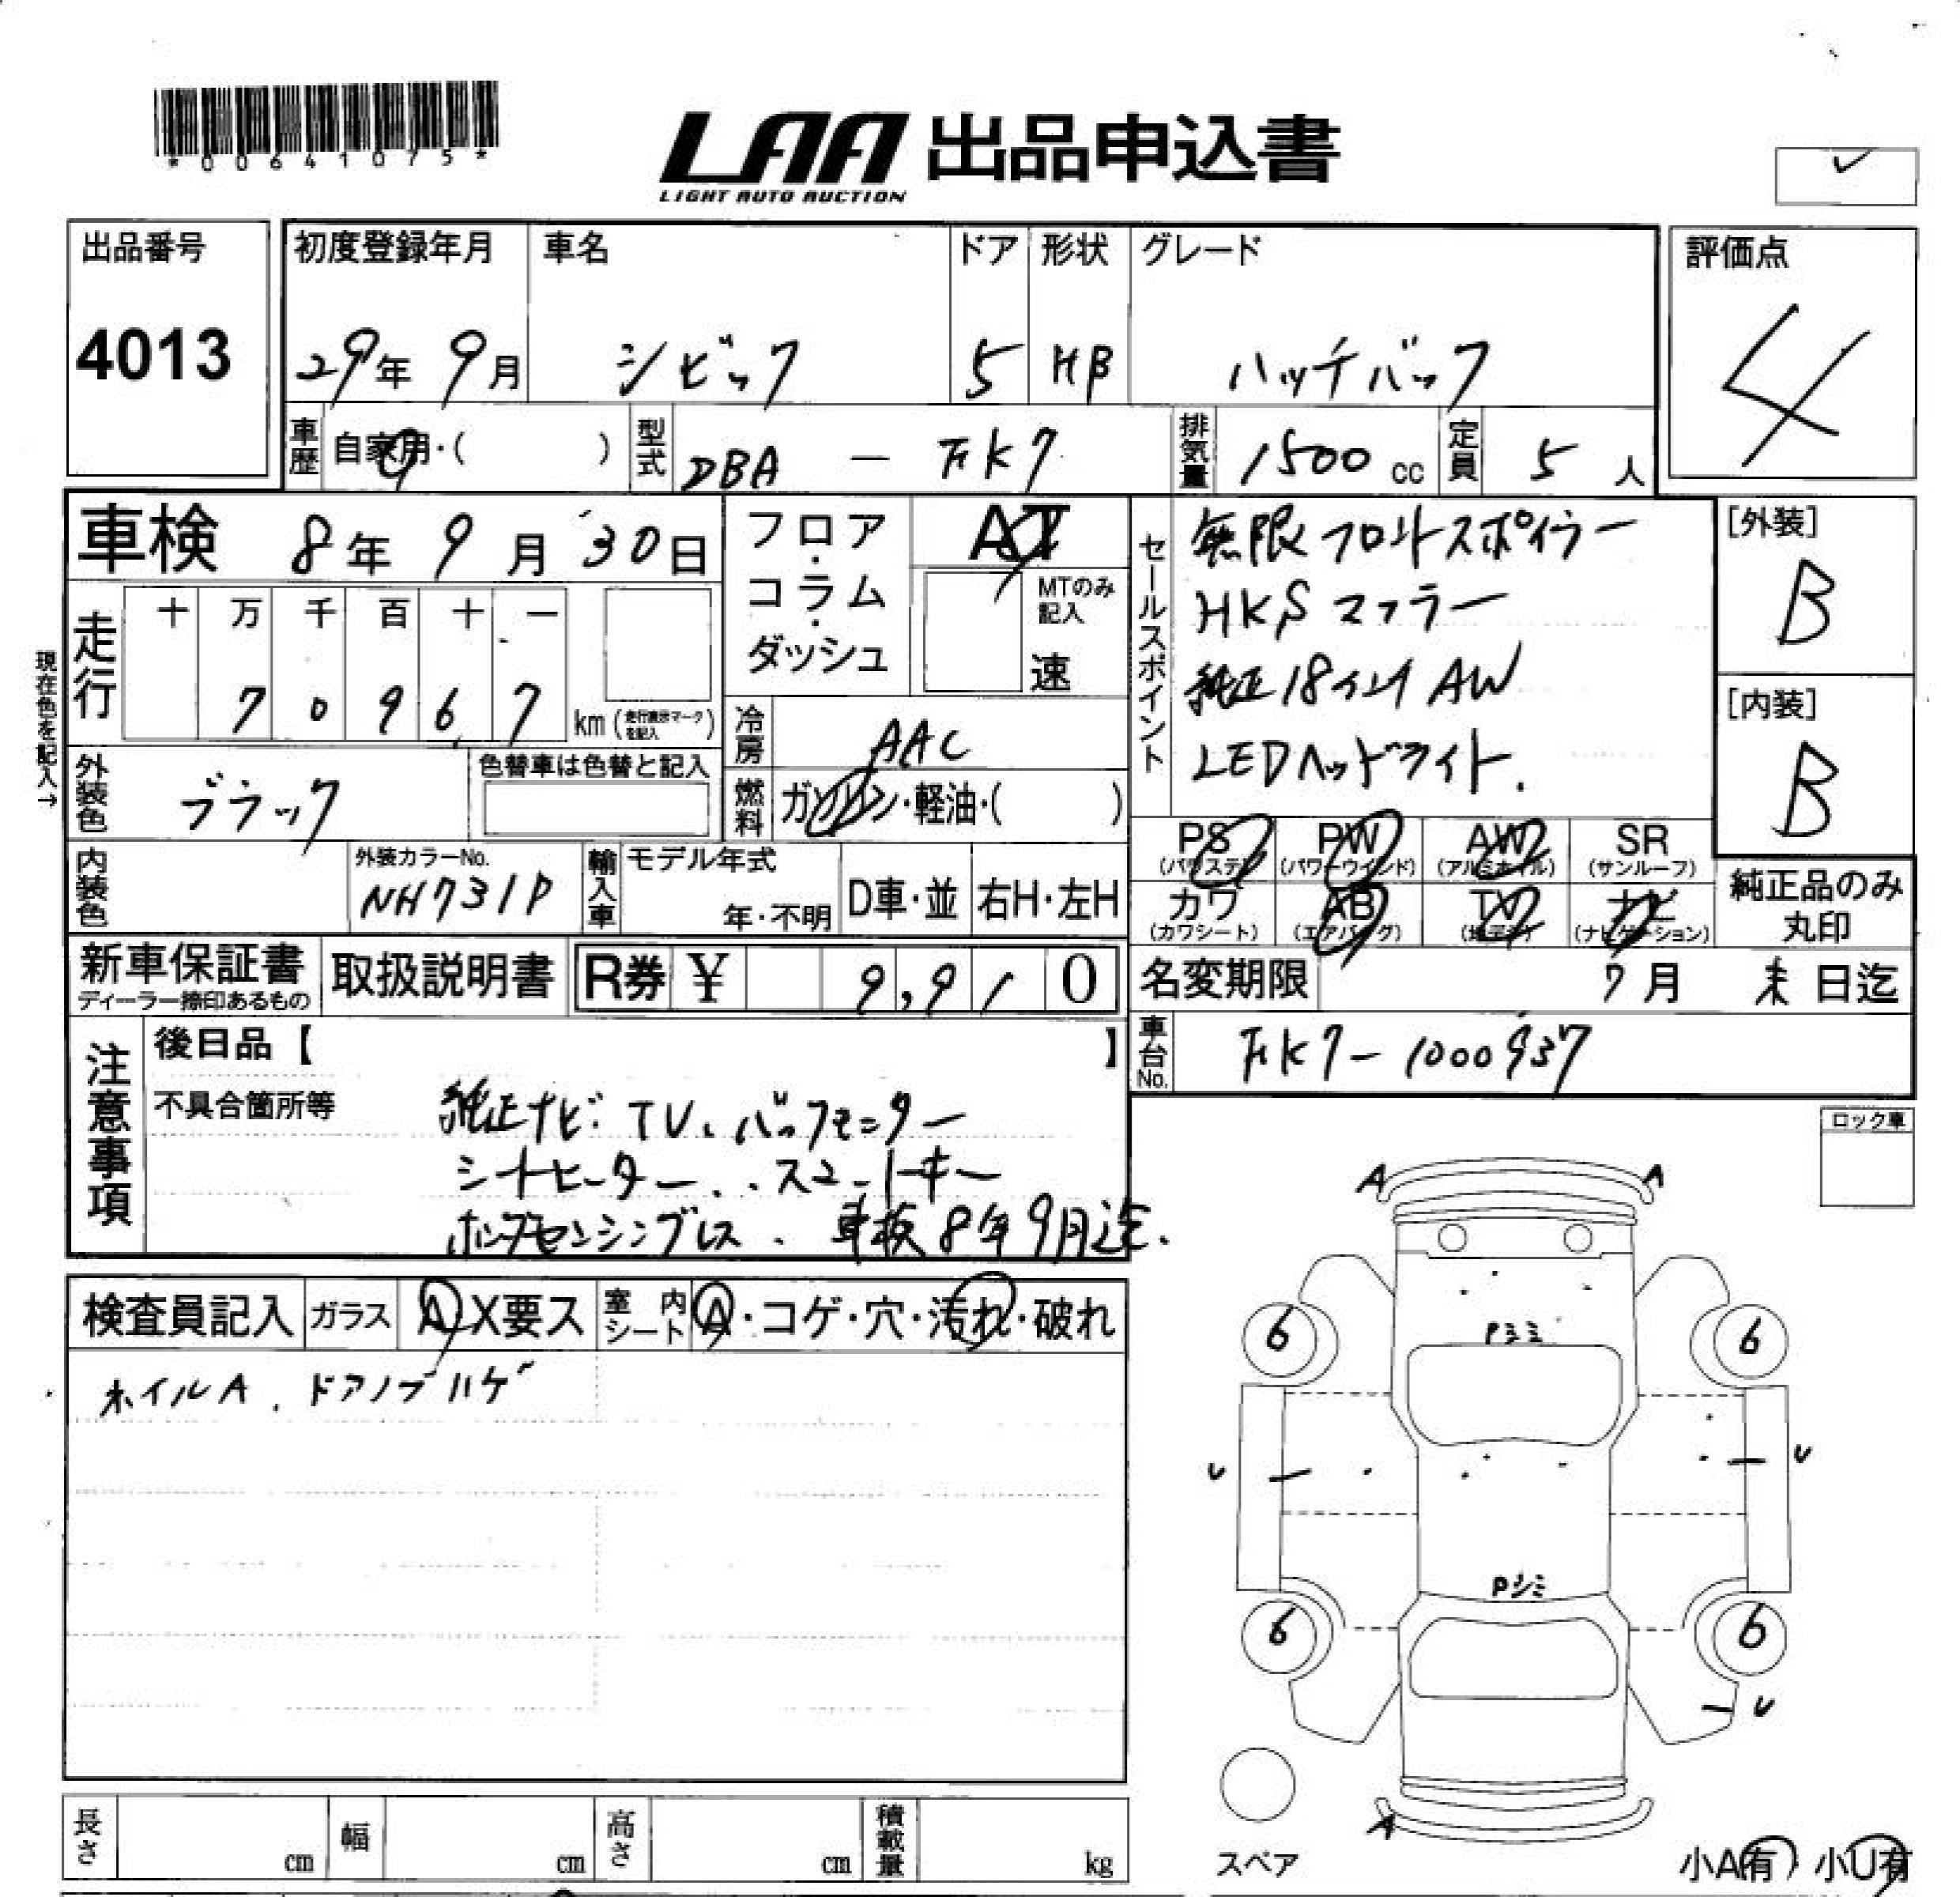 *00641075*
LAA 出品申込書
LIGHT AUTO AUCTION
出品番号
4013
初度登録年月
29年 9月
車名
シビック
ドア
5
形状
HB
グレード
ハッチバック
評価点
4
車歴
自家用・( )
型式
DBA - FK7
排気量
1500 cc
定員
5 人
車検 8年 9月 30日
フロア・コラム・ダッシュ
AT
MTのみ記入
速
セールスポイント
無限フロントスポイラー
HKSマフラー
純正18インチAW
LEDヘッドライト.
[外装]
B
[内装]
B
現在色を記入→
走行
十 万 千 百 十 一
7 0 9 6 7
km (走行表示マークを記入)
冷房
AAC
外装色
ブラック
色替車は色替と記入
燃料
ガソリン・軽油・( )
内装色
外装カラーNo.
NH731P
輸入車
モデル年式
年・不明
D車・並
右H・左H
PS
(パワステ)
PW
(パワーウインド)
AW
(アルミホイル)
SR
(サンルーフ)
カワ
(カワシート)
AB
(エアバッグ)
TV
(地デジ)
ナビ
(ナビゲーション)
純正品のみ
丸印
新車保証書
ディーラー捺印あるもの
取扱説明書
R券 ¥ 9,910
名変期限 7月 末日迄
車台No.
FK7-1000937
注意事項
後日品【 】
不具合箇所等
純正ナビ.TV、バックモニター
シートヒーター..スマートキー
ホンダセンシングレス. 車検8年9月迄.
ロック車
検査員記入
ガラス
A X要ス
室内シート
A・コゲ・穴・汚れ・破れ
ホイルA. ドアノブハゲ
A
A
6
6
Pシミ
U
U
Pシミ
6
6
U
A
スペア
小A有 小U有
長さ
cm
幅
cm
高さ
cm
積載量
kg